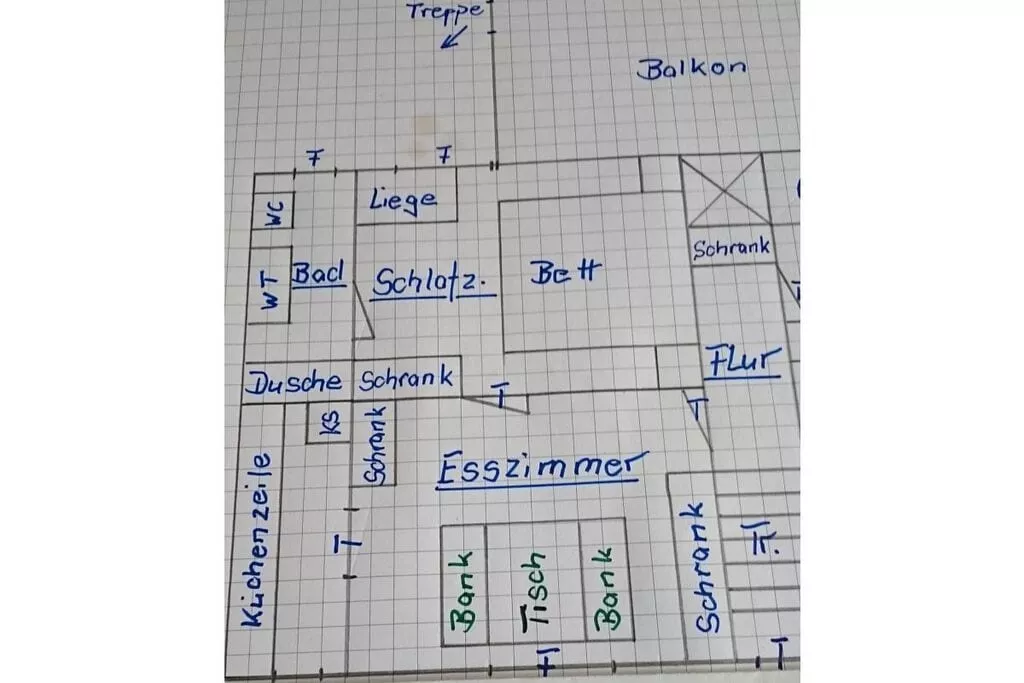 Treppe
Balkon
F
F
WC
Liege
WT
Bad
Schlafz.
Bett
Schrank
T
Dusche
Schrank
T
Flur
T
KS
Schrank
Küchenzeile
Esszimmer
T
Bank
Tisch
Bank
Schrank
Tr.
F
T